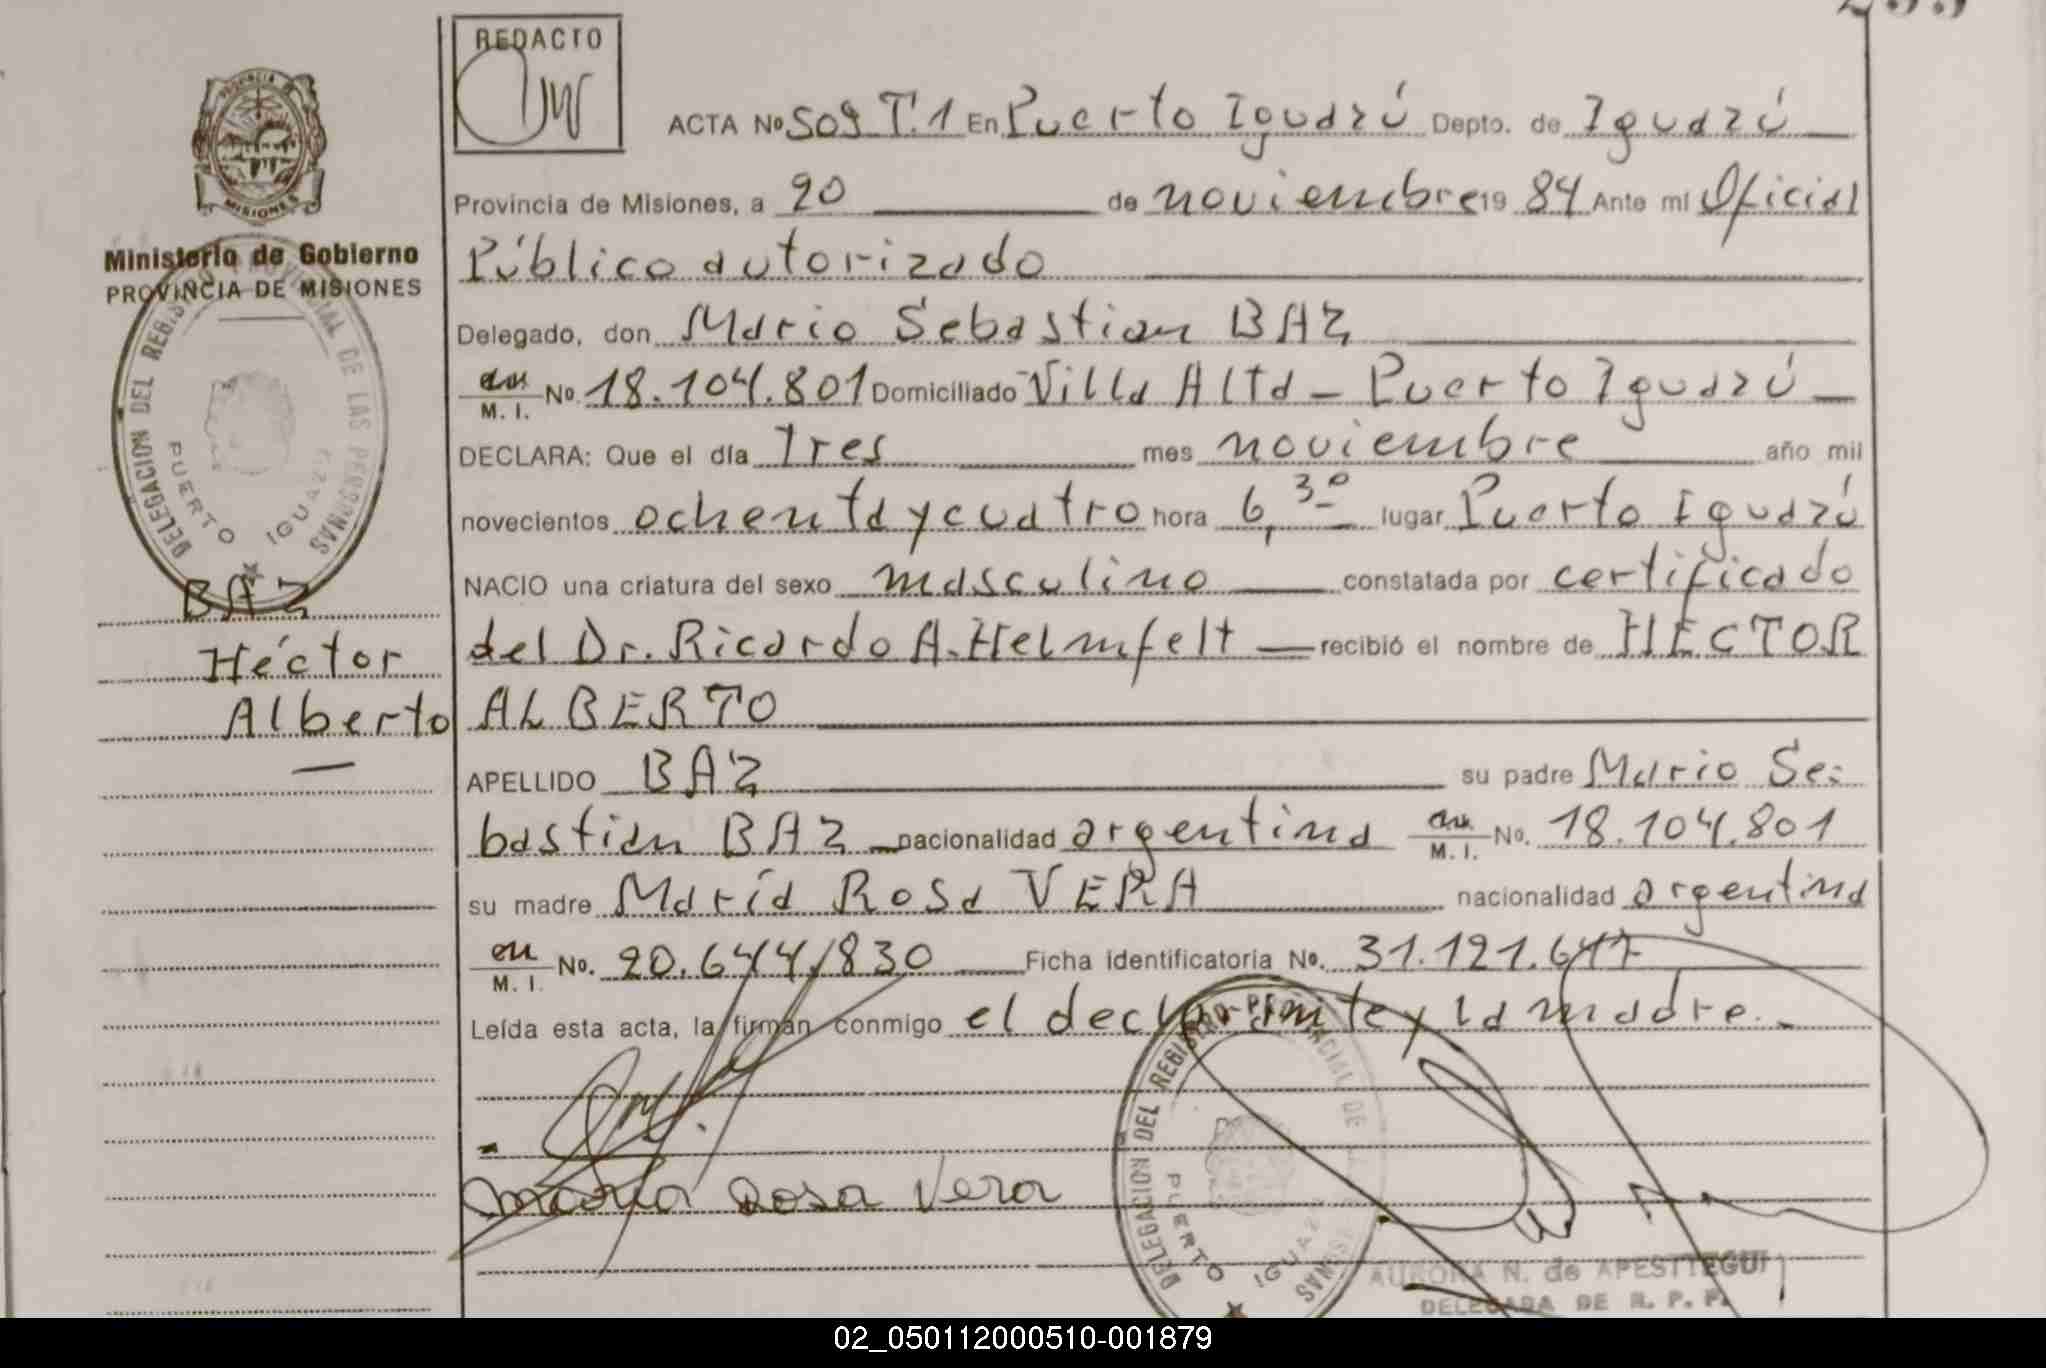 REDACTO
PROVINCIA DE
MISIONES
Ministerio de Gobierno
PROVINCIA DE MISIONES
DELEGACION DEL REGISTRO PROVINCIAL DE LAS PERSONAS
PUERTO IGUAZU
BAZ
Héctor
Alberto
—
ACTA No 509 T.1 En Puerto Iguazú Depto. de Iguazú
Provincia de Misiones, a 20 de noviembre 19 84 Ante mi Oficial
Público autorizado
Delegado, don Mario Sebastian BAZ
M. I. No. 18.104.801 Domiciliado Villa Alta - Puerto Iguazú
DECLARA: Que el día Tres mes noviembre año mil
novecientos ochenta y cuatro hora 6,30 lugar Puerto Iguazú
NACIO una criatura del sexo masculino constatada por certificado
del Dr. Ricardo A. Helmfelt recibió el nombre de HECTOR
ALBERTO
APELLIDO BAZ su padre Mario Se=
bastian BAZ nacionalidad argentina M. I. No. 18.104.801
su madre María Rosa VERA nacionalidad argentina
M. I. No. 20.644.830 Ficha identificatoria No. 31.121.647
Leída esta acta, la firman conmigo el declarante y la madre.
Maria Rosa Vera
DELEGACION DEL REGISTRO PROVINCIAL DE LAS PERSONAS
PUERTO IGUAZU
AURORA N. de APESTTEGUI
DELEGADA DE R. P. P.
02_050112000510-001879